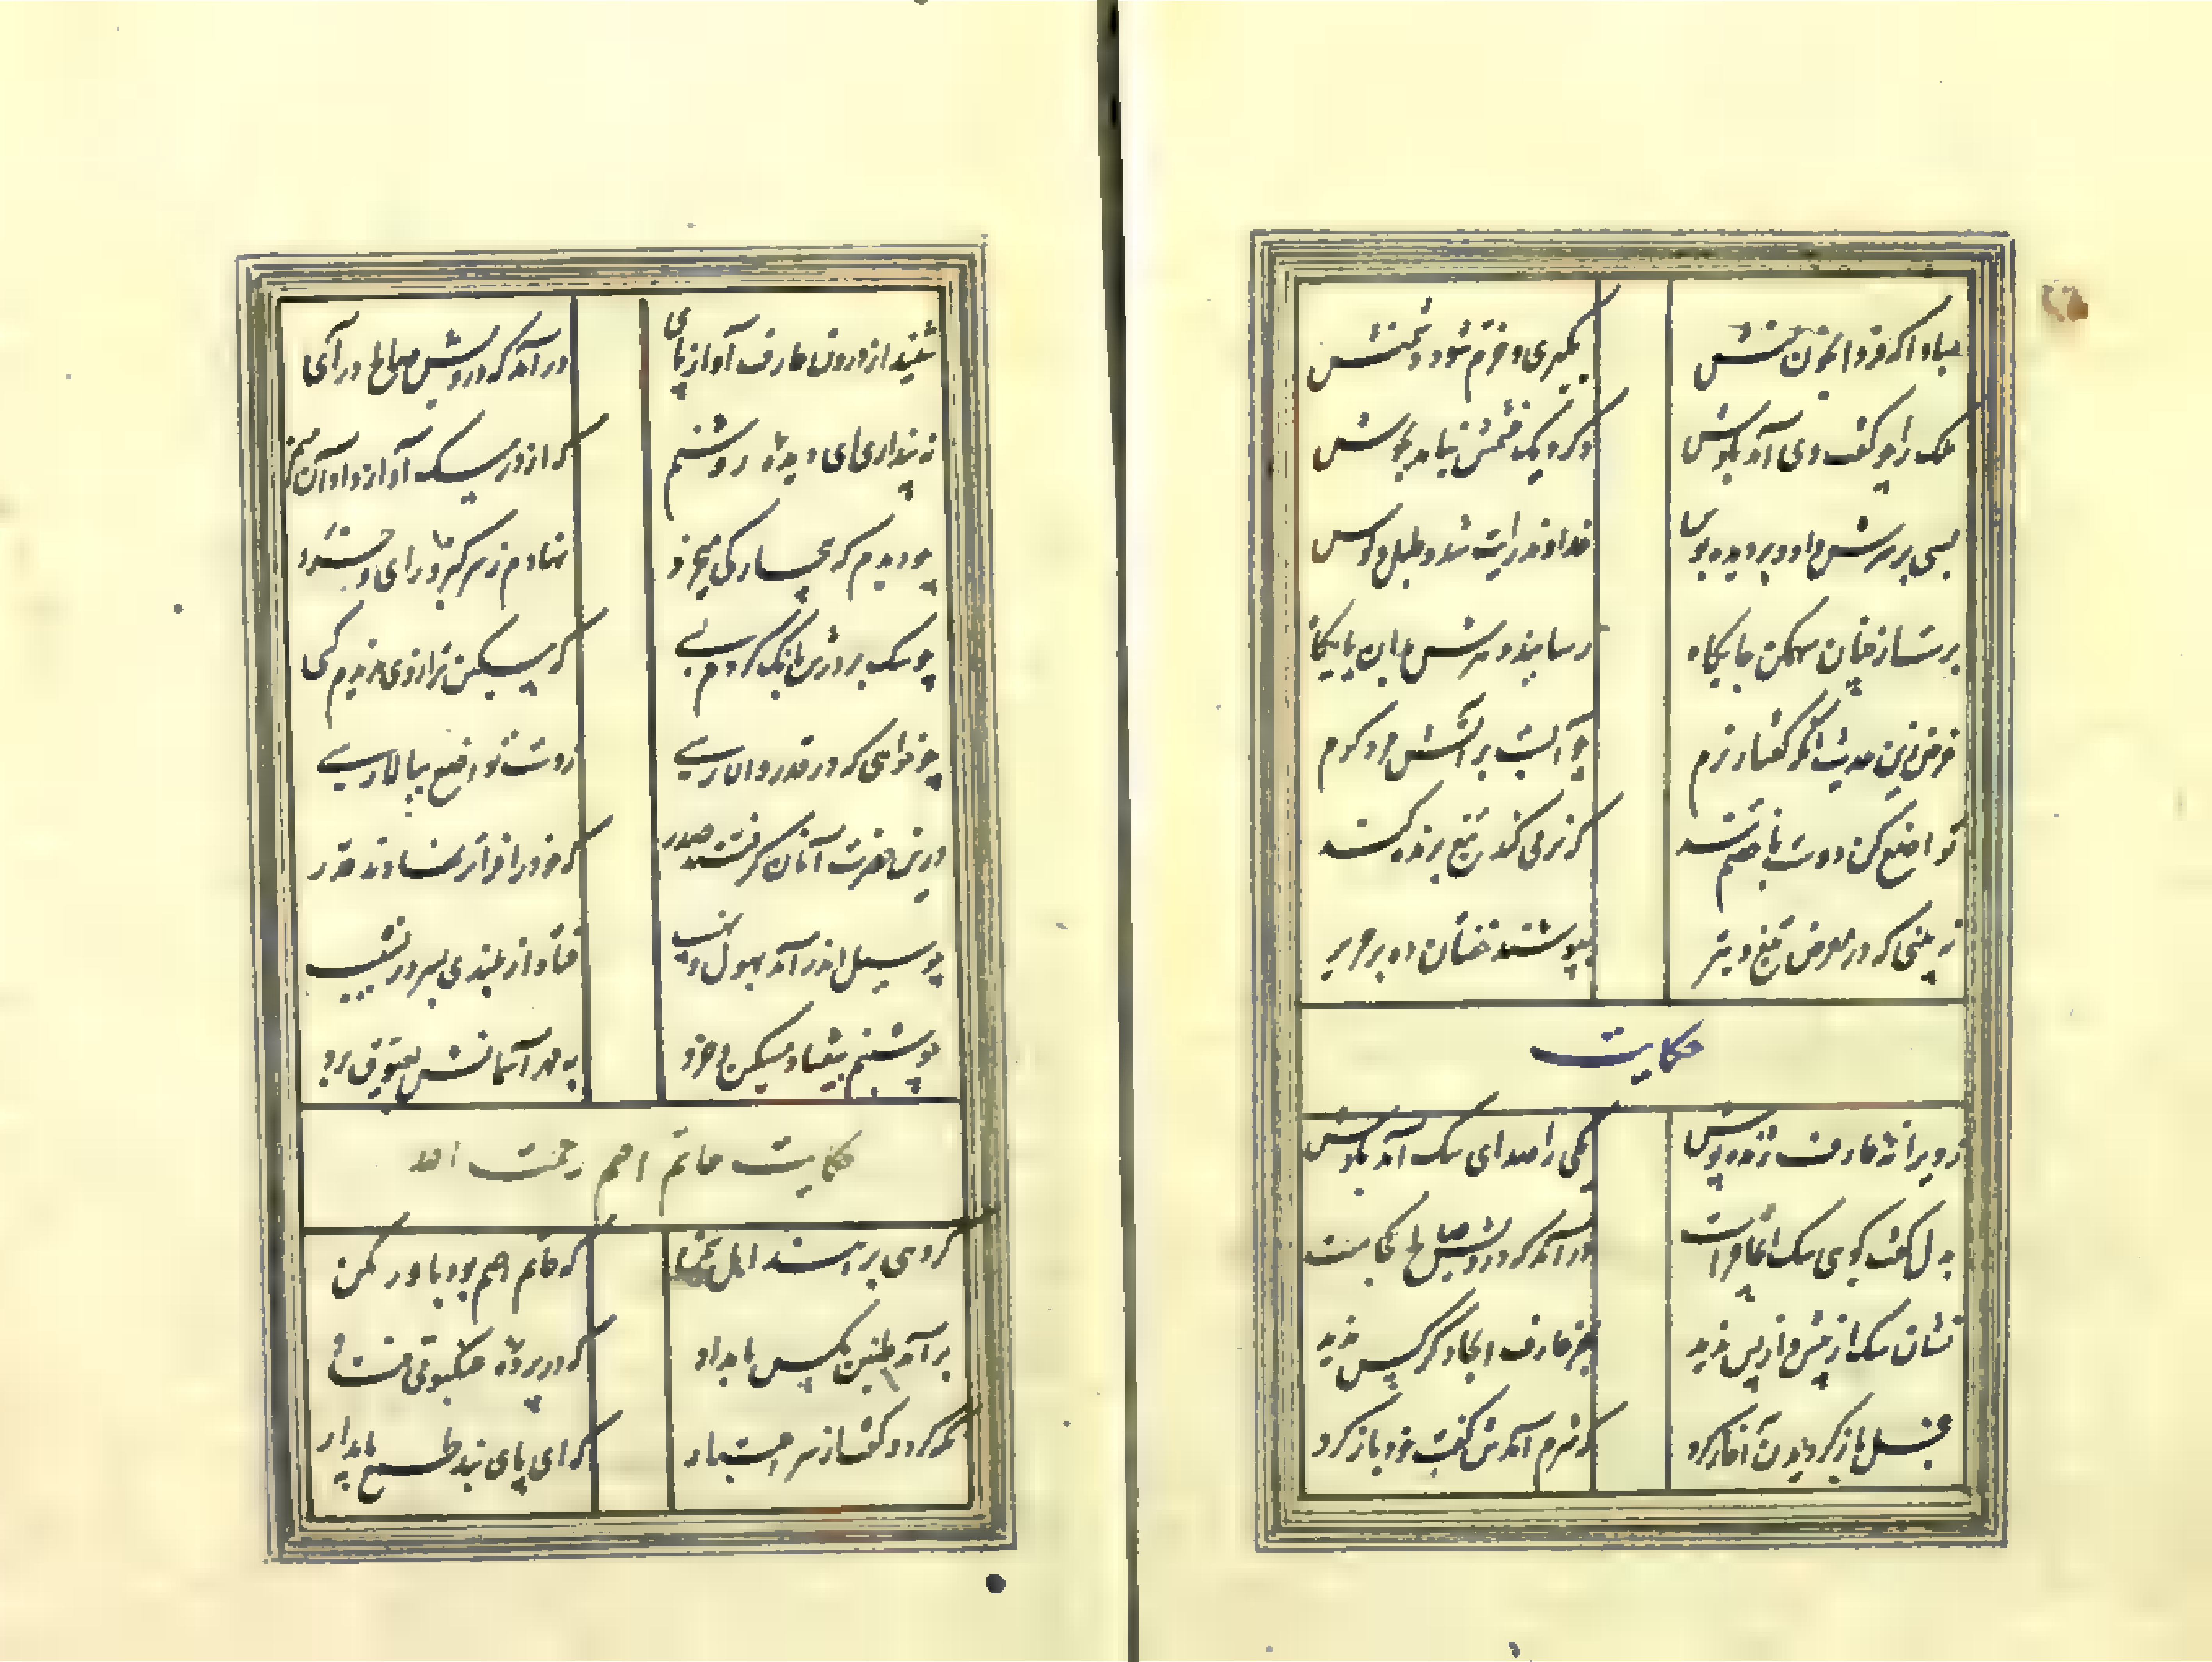 مبادا که فردا بخون منش
بگیری و خرم شود دشمنش
ملک را چو گفت وی آمد بگوش
دگر دیک خشمش نیامد بجوش
بسی بر سرش داد و بر دیده بوس
خداوند رایت شد و طبل و کوس
برفق از چنان سهمکن جایگاه
رسانید دهرش بدان پایگاه
غرض زین حدیث آنکه گفتار نرم
چو آبست بر آتش مرد گرم
تواضع کن ای دوست با خصم تند
که نرمی کند تیغ برنده کند
نه بینی که در معرض تیغ و تیر
بپوشند خفتان ده بر حریر
حکایت
ز ویرانه عارف ژنده پوش
یکی را صدای سک آمد بگوش
بدل گفت کوی سک اینجا چراست
درآمد که درویش صالح کجاست
نشان سک از پیش و از پس ندید
بجز عارف انجا دگر کس ندید
خجل باز گردیدن آغاز کرد
که شرم آمدش گفت خود باز کرد
شنید از درون عارف آواز پای
درآمد که درویش صالح درآی
نه پنداری ای دیده روشنم
که از در سک آواز داد آن منم
چو دیدم که بیچارگی میخرد
نهادم ز سر کبر و رای و خرد
چو سک بر درش بانگ کردم بسی
که مسکین تر از وی ندیدم کسی
چو خواهی که در قدر والا رسی
ز دست تواضع ببالا رسی
درین حضرت آنان گرفتند صدر
که خود را فروتر نهادند قدر
چو سیل اندر آمد بهول و نهیب
فتاد از بلندی بسر در نشیب
چو شبنم بیفتاد مسکین و خرد
به مهر آسمانش بعیوق برد
حکایت حاتم اصم رحمت الله
گروهی برانند اهل سخن
که حاتم اصم بود باور مکن
برآمد طنین مکس بامداد
که در پرده عنکبوتی فتاد
نگه کرد و گفت از سر اعتبار
که ای پای بند طمع پای دار